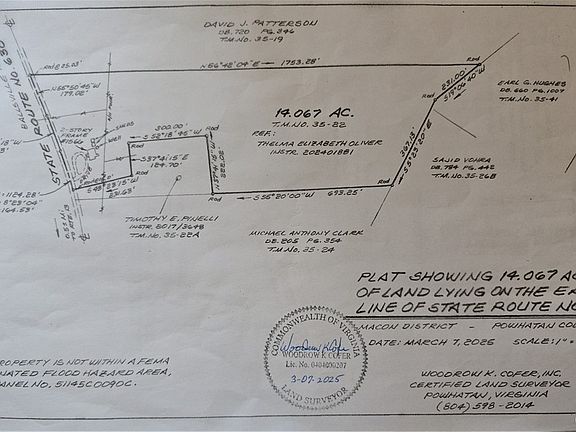 DAVID J. PATTERSON
DB. 720 PG. 346
T.M. No. 35-19
BALLSVILLE
STATE ROUTE No 630
N 56°48'04"E 1753.28'
Rod
Rod
231.00'
S 19°06'40"W
EARL G. HUGHES
DB. 660 PG. 1007
T.M. No. 35-41
14.067 AC.
T.M. No. 35-22
REF.:
THELMA ELIZABETH OLIVER
INSTR. 202401881
179.02'
2-STORY
FRAME
Well
300.00'
S 52°18'45"W
124.70'
Rod
Rod
Rod
222.02'
231.63'
S 55°20'00"W 693.25'
Rod
367.13'
S 5°23'20"E
SAJID VOHRA
DB. 784 PG. 442
T.M. No. 35-26B
TIMOTHY E. PINELLI
INSTR. 2017/3648
T.M. No. 35-22A
MICHAEL ANTHONY CLARK
DB. 205 PG. 354
T.M. No. 35-24
1124.28'
8°23'04"
164.53'
PLAT SHOWING 14.067 AC
OF LAND LYING ON THE EA
LINE OF STATE ROUTE NO
MACON DISTRICT - POWHATAN COU
DATE: MARCH 7, 2025 SCALE: 1" =
COMMONWEALTH OF VIRGINIA
Woodrow K. Cofer
WOODROW K. COFER
Lic. No. 0404000207
3-07-2025
LAND SURVEYOR
ROPERTY IS NOT WITHIN A FEMA
NATED FLOOD HAZARD AREA,
ANEL NO. 51145C0090C.
WOODROW K. COFER, INC.
CERTIFIED LAND SURVEYOR
POWHATAN, VIRGINIA
(804) 598-2014